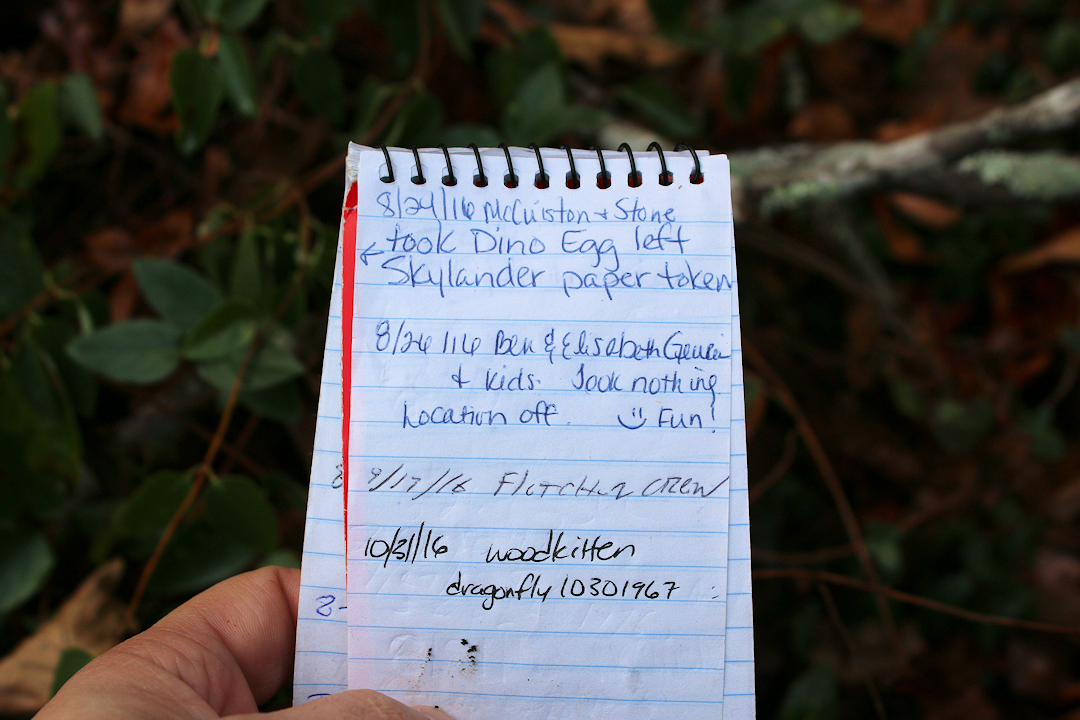 8/24/16 McCuiston + Stone
took Dino Egg left
← Skylander paper token
8/26/16 Ben & Elisabeth
+ kids. Took nothing
Location off. Fun!
9/17/16 Fletcher crew
10/31/16 woodkitten
dragonfly10301967